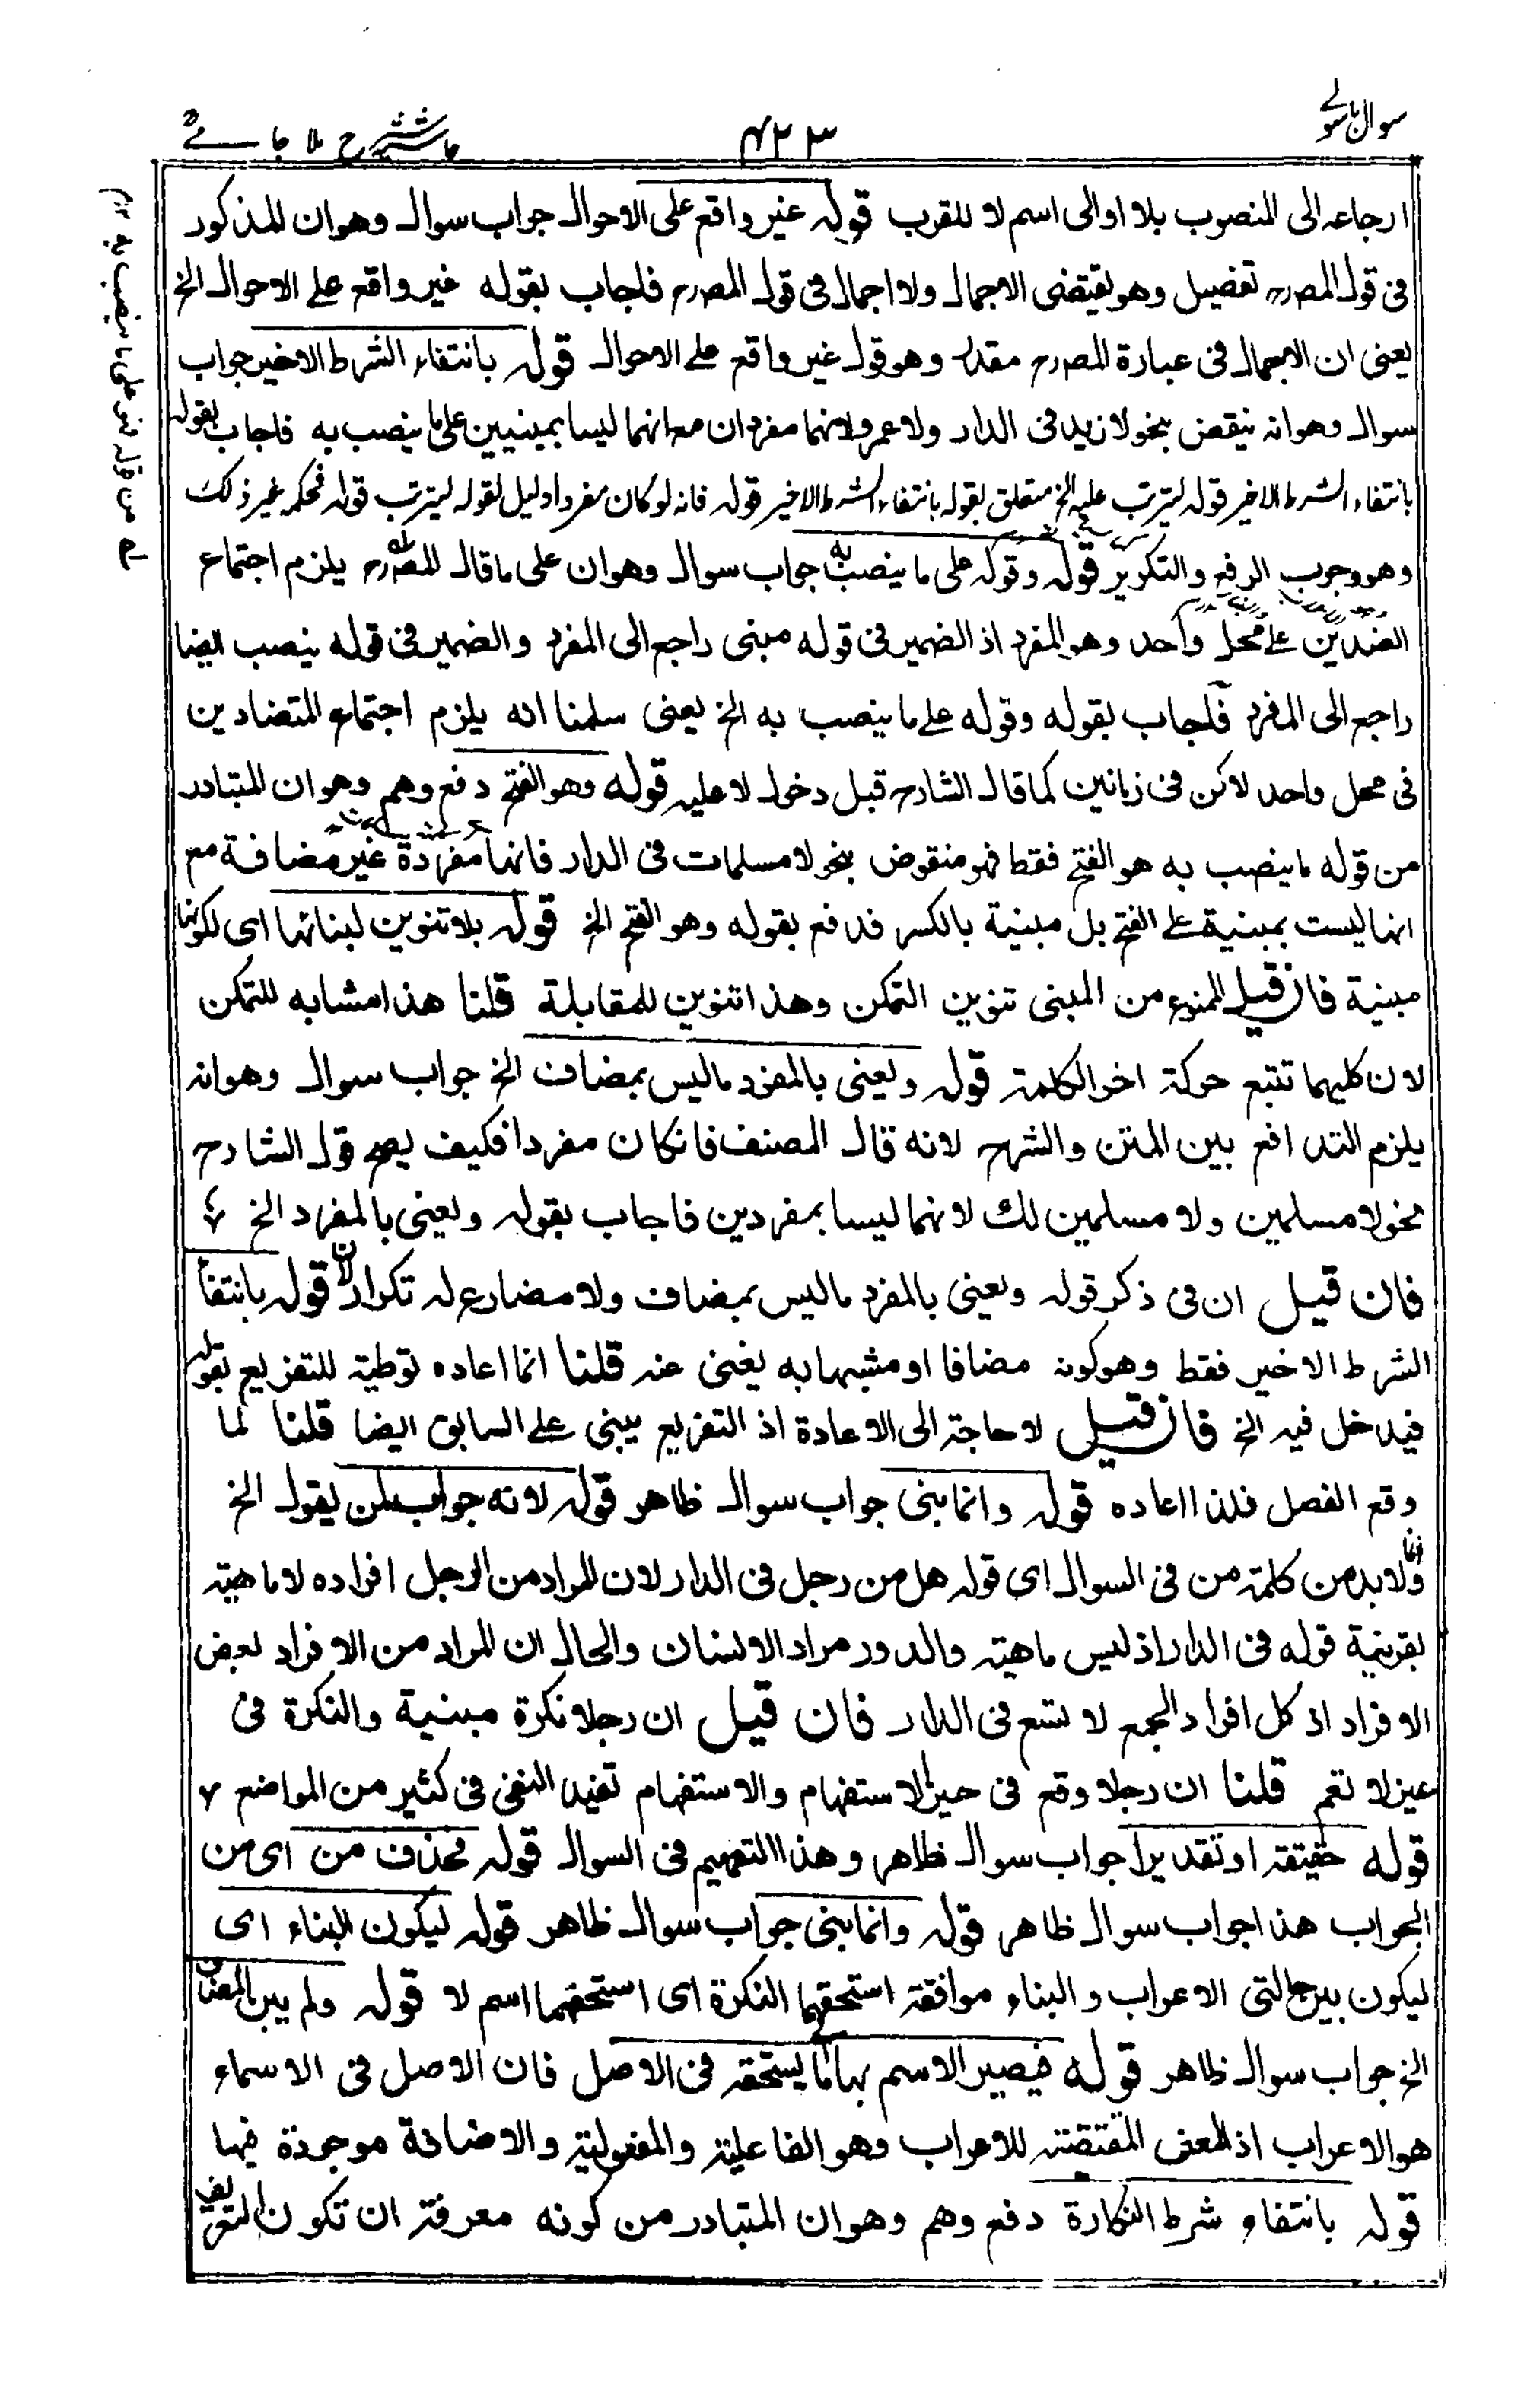 سوال باسولی
۴۲۳
حاشیہ شرح ملا جامی
ارجاعه الى المنصوب بلا او الى اسم لا للقرب قوله غير واقع على الاحوال جواب سوال وهو ان المذكور
فى قول المصرح تفصيل وهو يقتضى الاجمال ولا اجمال فى قول المصرح فاجاب بقوله غير واقع على الاحوال الخ
يعنى ان الاجمال فى عبارة المصرح مقدر وهو قول غير واقع على الاحوال قوله بانتفاء الشرط الاخير جواب
سوال وهو انه ينقض بنحو لا زيد فى الدار ولا عمرو لانهما مفردان مع انهما ليسا بمبنيين على ما ينصب به فاجاب بقوله
بانتفاء الشرط الاخير قوله ليترتب عليه الخ متعلق بقوله بانتفاء الشرط الاخير قوله فانه لو كان مفردا دليل لقوله ليترتب قوله فحكمه غير ذلك
وهو وجوب الرفع والتكرير قوله وقوله على ما ينصب به جواب سوال وهو ان على ما قال المصرح يلزم اجتماع
الضدين على محل واحد وهو المفرد اذ الضمير فى قوله مبنى راجع الى المفرد والضمير فى قوله ينصب ايضا
راجع الى المفرد فاجاب بقوله وقوله على ما ينصب به الخ يعنى سلمنا انه يلزم اجتماع المتضادين
فى محل واحد لاكن فى زمانين كما قال الشارح قبل دخول لا عليه قوله وهو الفتح دفع وهم وهو ان المتبادر
من قوله ما ينصب به هو الفتح فقط فهو منقوض بنحو لا مسلمات فى الدار فانها مفردة غير مضافة مع
انها ليست بمبنية على الفتح بل مبنية بالكسر فدفع بقوله وهو الفتح الخ قوله بلا تنوين لبنائها اى لكونها
مبنية فان قيل الممنوع من المبنى تنوين التمكن وهذا تنوين للمقابلة قلنا هذا مشابه للتمكن
لان كليهما تتبع حركة اخر الكلمة قوله ويعنى بالمفرد ما ليس بمضاف الخ جواب سوال وهو انه
يلزم التدافع بين المتن والشرح لانه قال المصنف فان كان مفردا فكيف يصح قول الشارح
نحو لا مسلمين ولا مسلمين لك لانهما ليسا بمفردين فاجاب بقوله ويعنى بالمفرد الخ
فان قيل ان فى ذكر قوله ويعنى بالمفرد ما ليس بمضاف ولا مضارع له تكرار لان قوله بانتفاء
الشرط الاخير فقط وهو كونه مضافا او مشبها به يغنى عنه قلنا انما اعاده توطية للتفريع بقوله
فيدخل فيه الخ فان قيل لا حاجة الى الاعادة اذ التفريع يبنى على السابق ايضا قلنا لما
وقع الفصل فلذا اعاده قوله وانما بنى جواب سوال ظاهر قوله لانه جواب لمن يقول الخ
وانما لابد من كلمة من فى السوال اى قوله هل من رجل فى الدار لان المراد من الرجل افراده لا ماهيته
بقرينة قوله فى الدار اذ ليس ماهيته والدور مراد الانسان والحال ان المراد من الافراد بعض
الافراد اذ كل افراد الجمع لا تسع فى الدار فان قيل ان رجلا نكرة مبنية والنكرة فى
غيره لا تعم قلنا ان رجلا وقع فى حيز الاستفهام والاستفهام تفيد النفى فى كثير من المواضع
قوله حقيقة او تقديرا جواب سوال ظاهر وهذا التعميم فى السوال قوله فحذف من اى من
الجواب هذا جواب سوال ظاهر قوله وانما بنى جواب سوال ظاهر قوله ليكون البناء اى
ليكون بين حالتى الاعراب والبناء موافقة استحقها النكرة اى استحقهما اسم لا قوله ولم يبن المضاف
الخ جواب سوال ظاهر قوله فيصير الاسم بها الى ما يستحقه فى الاصل فان الاصل فى الاسماء
هو الاعراب اذ المعنى المقتضية للاعراب وهو الفاعلية والمفعولية والاضافة موجودة فيها
قوله بانتفاء شرط النكارة دفع وهم وهو ان المتبادر من كونه معرفة ان تكون التعريف